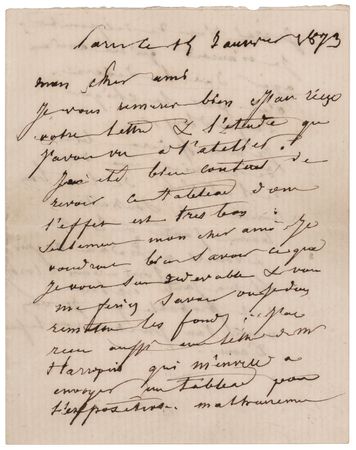 Paris le 15 Janvier 1873
mon cher ami
Je vous remercie bien J'ai reçu
votre lettre & l'étude que
j'avais vu a l'atelier.
J'ai été bien content de
revoir ce tableau dont
l'effet est très bon
Seulement mon cher ami Je
voudrais bien savoir ce que
Je vous suis redevable & vous
me ferez savoir ou Je dois
remettre les fonds. J'ai
recu aussi une lettre de Mr
qui m'invite a
envoyer un tableau pour
l'exposition. malheureusement